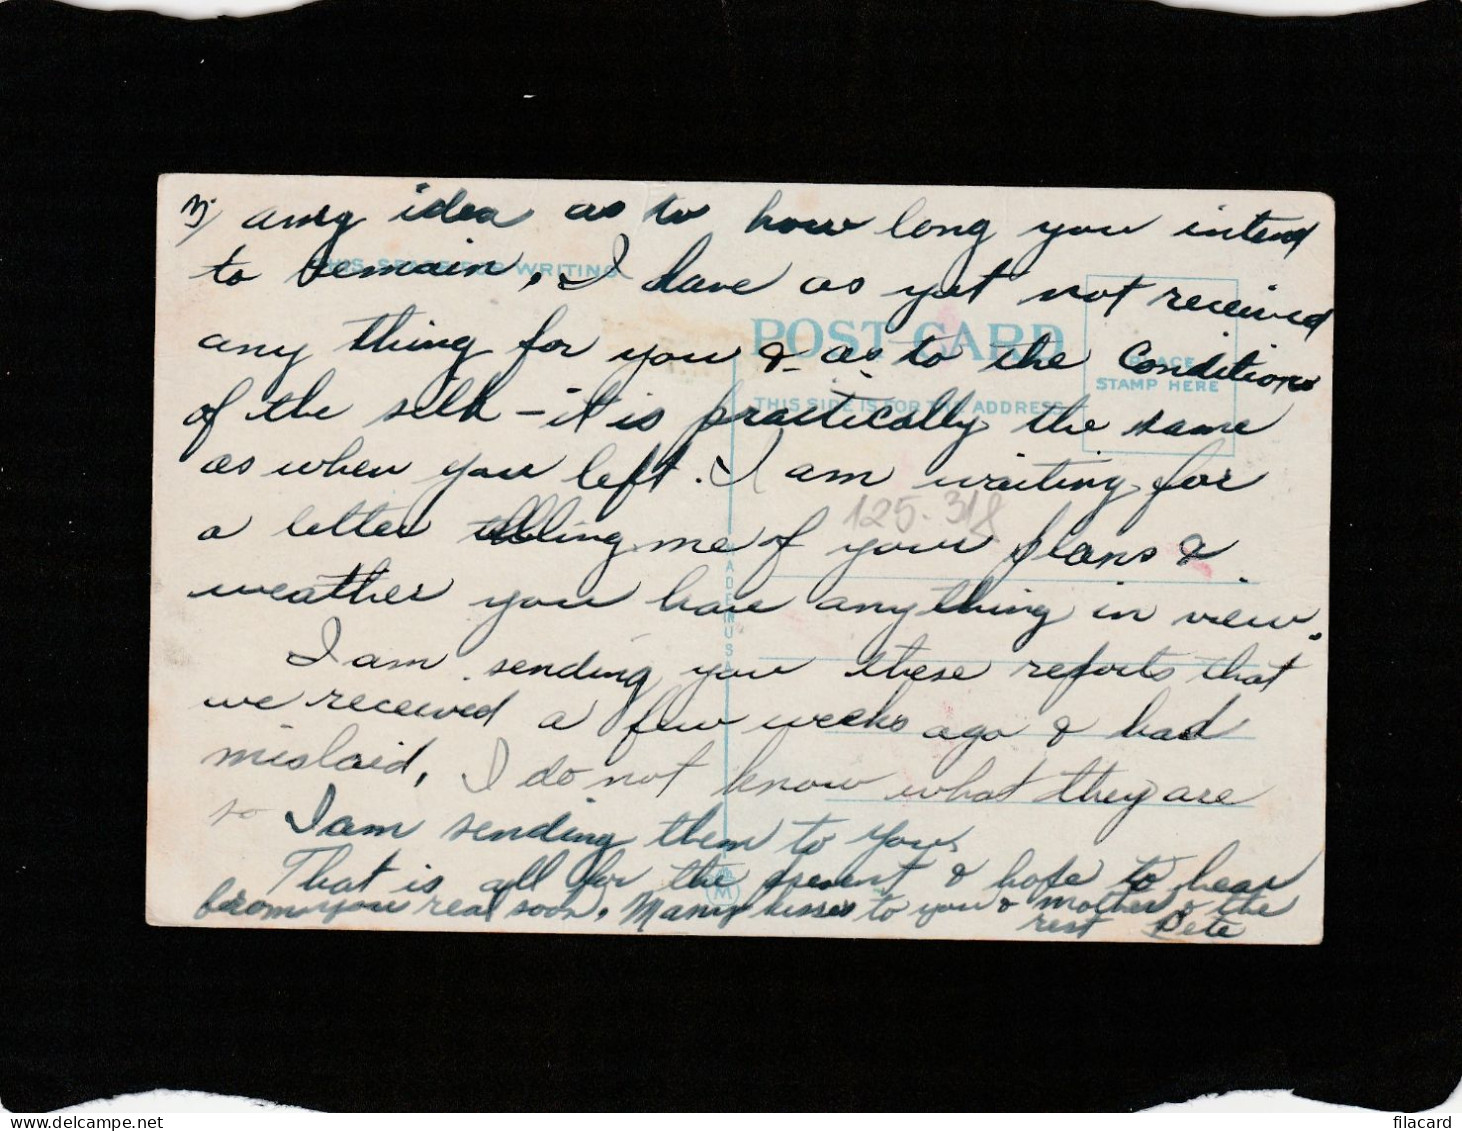 3) any idea as to how long you intend
to remain. I have as yet not received
any thing for you & as to the Conditions
of the silk - it is practically the same
as when you left. I am waiting for
a letter telling me of your plans &
weather you have anything in view.
I am sending you these reports that
we received a few weeks ago & had
mislaid. I do not know what they are
so I am sending them to you.
That is all for the present & hope to hear
from you real soon. Many kisses to you & mother & the
rest Pete
THIS SPACE FOR WRITING
POST CARD
THIS SIDE IS FOR THE ADDRESS
PLACE
STAMP HERE
MADE IN USA
M
125-318
filacard